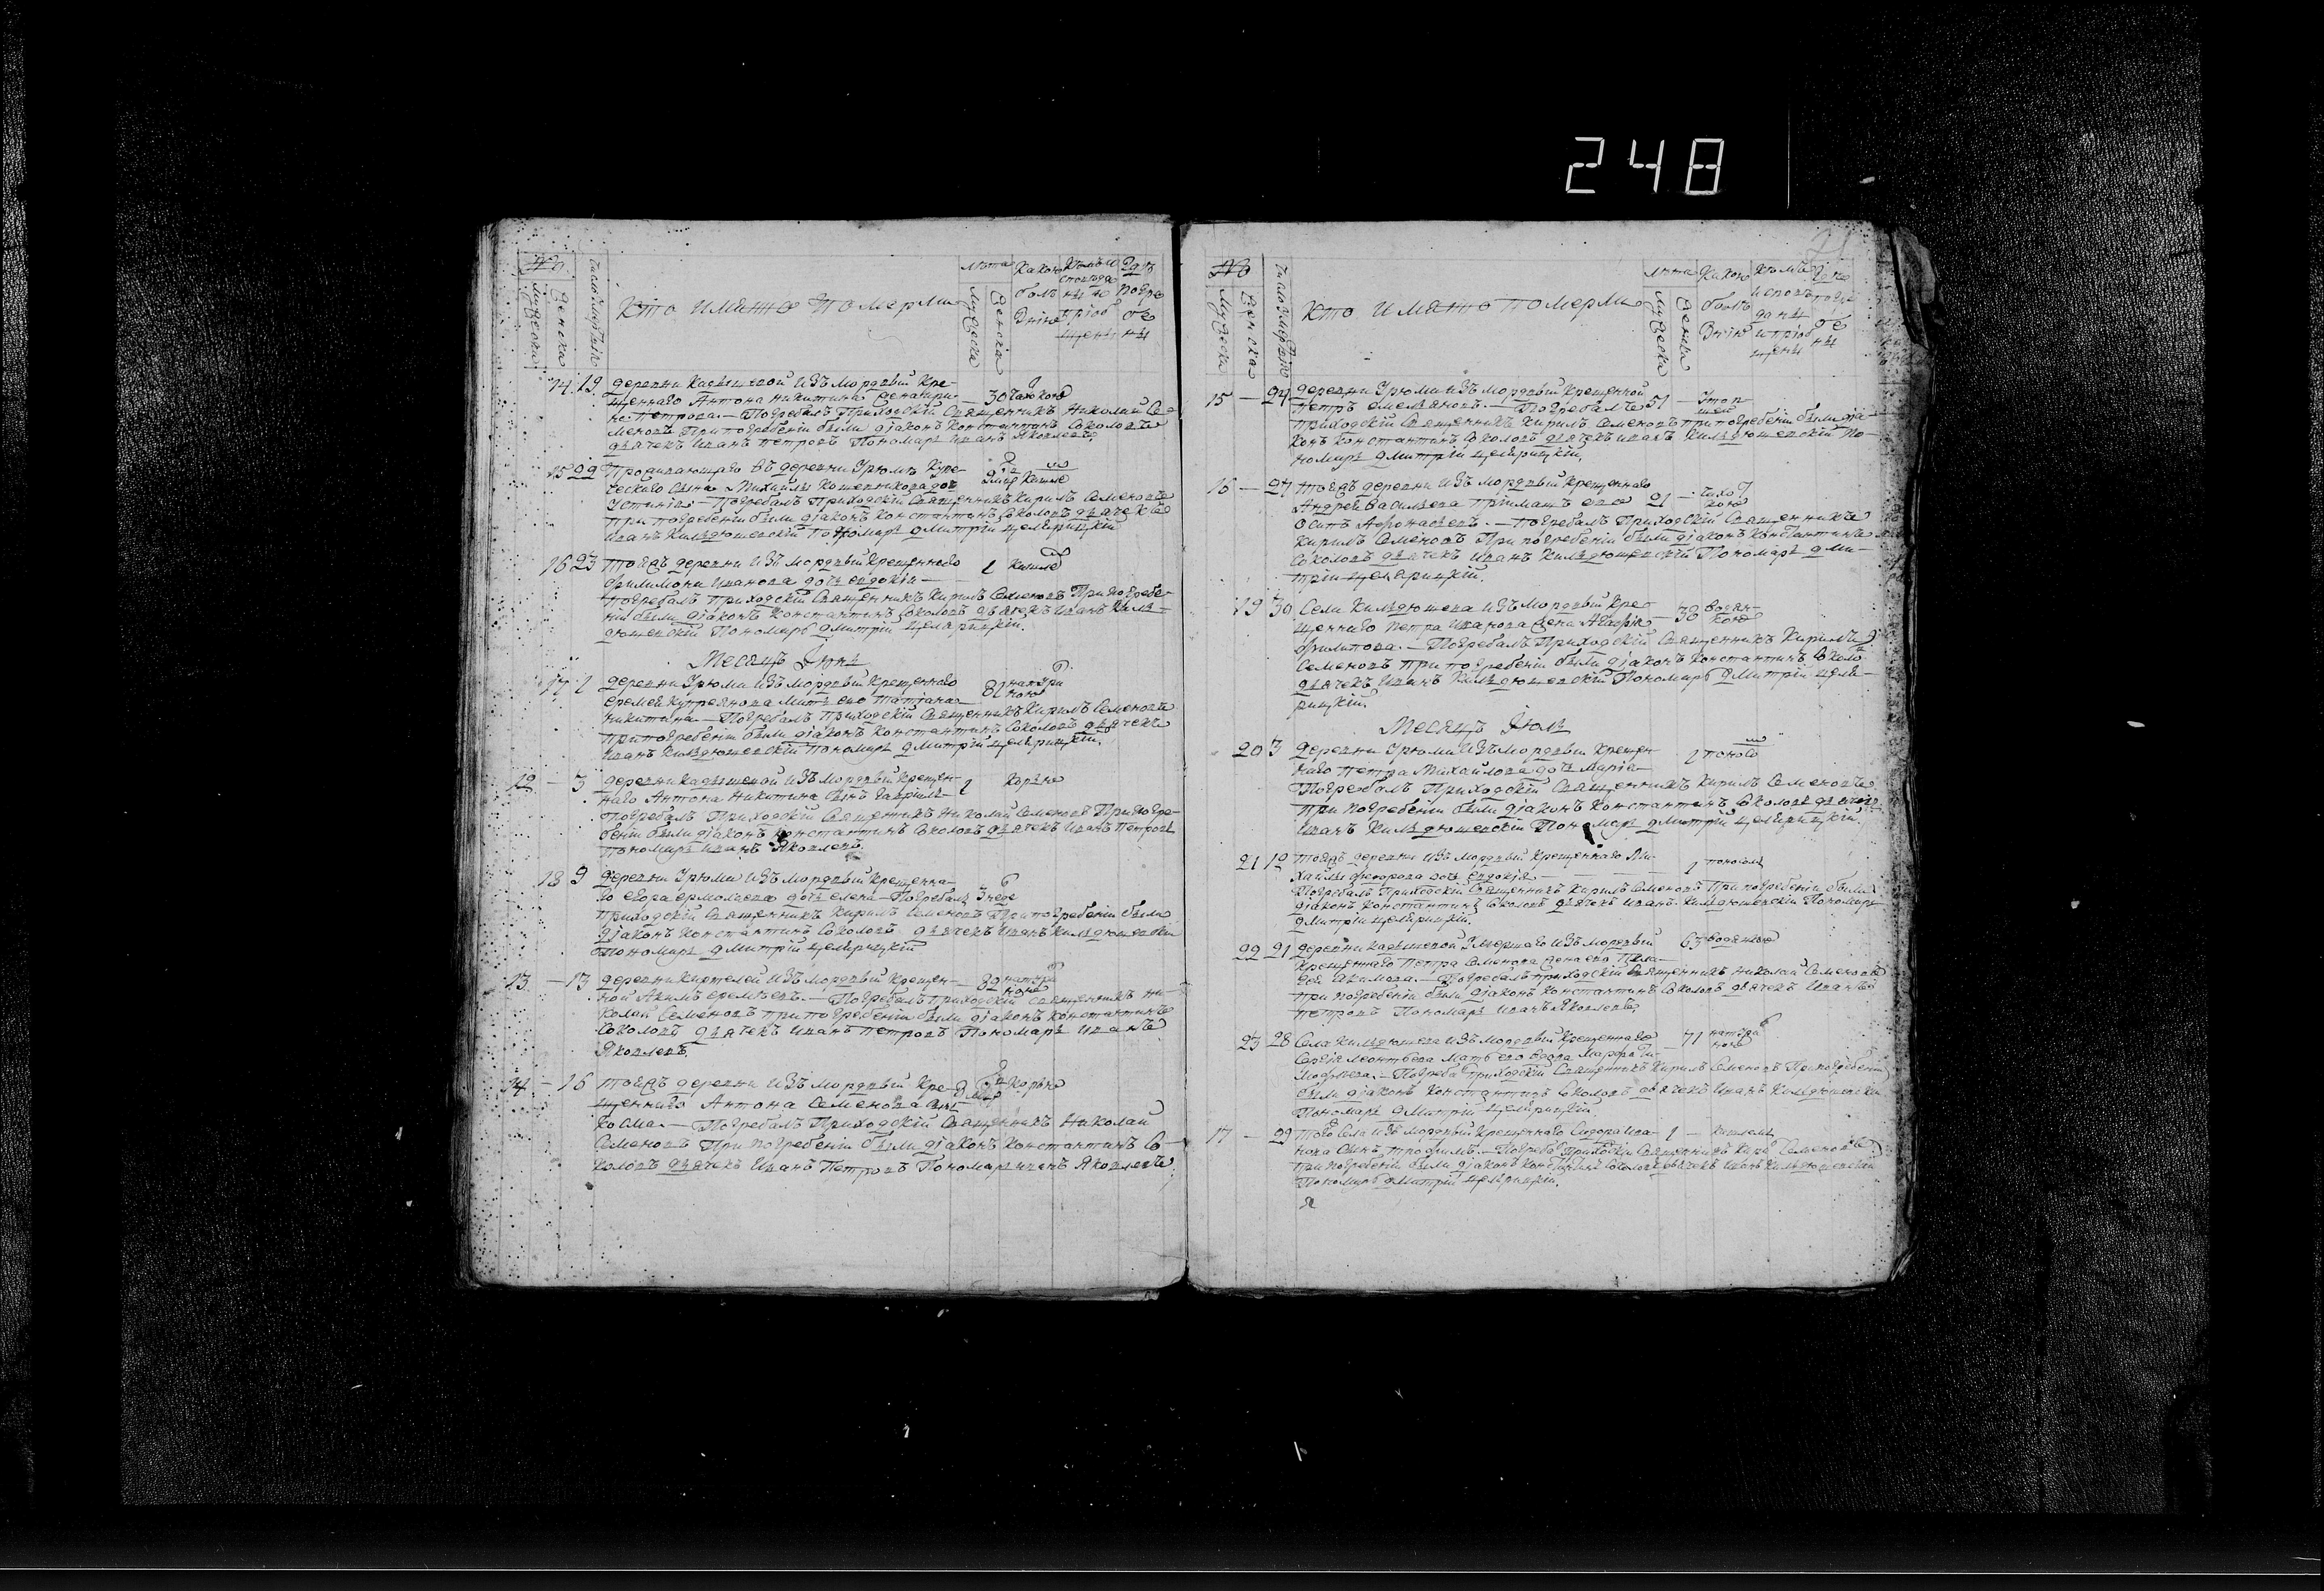 248
21
№
Мужеска
Женска
Число умертвія
Кто имянно померли
Лѣта
Мужеска
Женска
Какою
болѣ
знію
Кѣмъ и
сповѣда
ны и
пріоб
щены
Гдѣ
погре
бе
ны
14 19 деревни Кадышевой изъ мордвы кре-
щеннаго Антона Никитина жена Ири-
на Петрова. — Погребалъ приходскій священникъ Николай Се-
меновъ при погребеніи были діаконъ Константинъ Соколовъ
дьячекъ Иванъ Петровъ пономарь Иванъ Яковлевъ
30 чахоткою
15 22 Проживающаго въ деревни Урюмѣ купе-
ческаго сына Михайлы Кошевникова дочь
Устинія — Погребалъ приходскій священникъ Кирилъ Семеновъ
при погребеніи были діаконъ Константинъ Соколовъ дьячекъ
Иванъ Кильдюшевскій пономарь Дмитрій Цельрицкій
кашле
16 23 тойжъ деревни изъ мордвы крещеннаго
Филимона Иванова дочь Евдокія —
1 кашле
погребалъ приходскій священникъ Кирилъ Семеновъ при погребе-
ніи были діаконъ Константинъ Соколовъ дьячекъ Иванъ Киль-
дюшевскій пономарь Дмитрій Цельрицкій.
Месяцъ Іюнь
17 1 деревни Урюми изъ мордвы крещеннаго
Еремея Купреянова мать его Татіана
Никитина — Погребалъ приходскій священникъ Кирилъ Семеновъ
при погребеніи были діаконъ Константинъ Соколовъ дьячекъ
Иванъ Кильдюшевскій пономарь Дмитрій Цельрицкій.
81 натура
ною
12 — 3 деревни Кадышевой изъ мордвы крещен-
наго Антона Никитина сынъ Гаврилъ
1 корью
погребалъ приходскій священникъ Николай Семеновъ при погре-
беніи были діаконъ Константинъ Соколовъ дьячекъ Иванъ Петровъ
пономарь Иванъ Яковлевъ.
18 9 деревни Урюми изъ мордвы крещенна-
го Егора Ермолаева дочь Елена — Погребалъ
3 неде
приходскій священникъ Кирилъ Семеновъ при погребеніи были
діаконъ Константинъ Соколовъ дьячекъ Иванъ Кильдюшевски
пономарь Дмитрій Цельрицкій
13 — 13 деревни Киртелей изъ мордвы крещен-
ной Акимъ Еремѣевъ. — Погребалъ приходскій священникъ Ни-
колай Семеновъ при погребеніи были діаконъ Константинъ
Соколовъ дьячекъ Иванъ Петровъ пономарь Иванъ
Яковлевъ.
натура
ною
14 — 16 тойжъ деревни изъ мордвы кре-
щеннаго Антона Семенова сынъ
Козма. — Погребалъ приходскій священникъ Николай
Семеновъ при погребеніи были діаконъ Константинъ Со-
коловъ дьячекъ Иванъ Петровъ пономарь Иванъ Яковлевъ.
корью
№
Мужеска
Женска
Число умертвія
Кто имянно померли
Лѣта
Мужеска
Женска
Какою
болѣ
знію
Кѣмъ
исповѣ
даны
и пріоб
щены
15 — 24 деревни Урюми изъ мордвы крещенной
Петръ Емельяновъ. — Погребалъ
51 — утоп
шей
приходскій священникъ Кирилъ Семеновъ при погребеніи были діа-
конъ Константинъ Соколовъ дьячекъ Иванъ Кильдюшевскій по-
номарь Дмитрій Цельрицкій.
16 — 27 тойжъ деревни изъ мордвы крещеннаго
Андрея Васильева пріимашъ его
Осипъ Афонасьевъ. — погребалъ приходскій священникъ
21 — чахот
кою
Кирилъ Семеновъ при погребеніи были діаконъ Константинъ
Соколовъ дьячекъ Иванъ Кильдюшевскій пономарь Дми-
трій Цельрицкій.
19 30 Села Кильдюшева изъ мордвы кре-
щеннаго Петра Иванова жена Агафія
38 водян-
кою
Филипова. — Погребалъ приходскій священникъ Кирилъ
Семеновъ при погребеніи были діаконъ Константинъ Соколо
дьячекъ Иванъ Кильдюшевскій пономарь Дмитрій Цель-
рицкій.
Месяцъ Іюль
20 3 деревни Урюми изъ мордвы крещен
наго Петра Михайлова дочь Марія
1 поносо
Погребалъ приходскій священникъ Кирилъ Семеновъ
при погребеніи были діаконъ Константинъ Соколовъ дьячекъ
Иванъ Кильдюшевскій пономарь Дмитрій Цельрицкій.
21 10 тойжъ деревни изъ мордвы крещеннаго Ми-
хайлы Федорова дочь Евдокія
1 поносом
погребалъ приходскій священникъ Кирилъ Семеновъ при погребеніи были
діаконъ Константинъ Соколовъ дьячекъ Иванъ Кильдюшевскій пономарь
Дмитрій Цельрицкій.
22 21 деревни Кадышевой умершаго изъ мордвы
крещеннаго Петра Семенова жена его Пела-
гея Акимова. — Погребалъ приходскій священникъ Николай Семеновъ
63 водяною
при погребеніи были діаконъ Константинъ Соколовъ дьячекъ Иванъ
Петровъ пономарь Иванъ Яковлевъ.
23 28 Села Кильдюшева изъ мордвы крещеннаго
Сергѣя Леонтьева мать его вдова Марфа Ти-
71 натура
ною
мофѣева. — Погреба приходскій священникъ Кирилъ Семеновъ при погребеніи
были діаконъ Константинъ Соколовъ дьячекъ Иванъ Кильдюшевски
пономарь Дмитрій Цельрицкій.
17 — 29 того села изъ мордвы крещеннаго Сидора Ива-
нова сынъ Трофимъ. — Погреба приходски священникъ Кирил Семеновъ
1 — кашлем
при погребеніи были діаконъ Константинъ Соколовъ дьячекъ Иванъ Кильдюшевски
пономарь Дмитрій Цельрицкій.